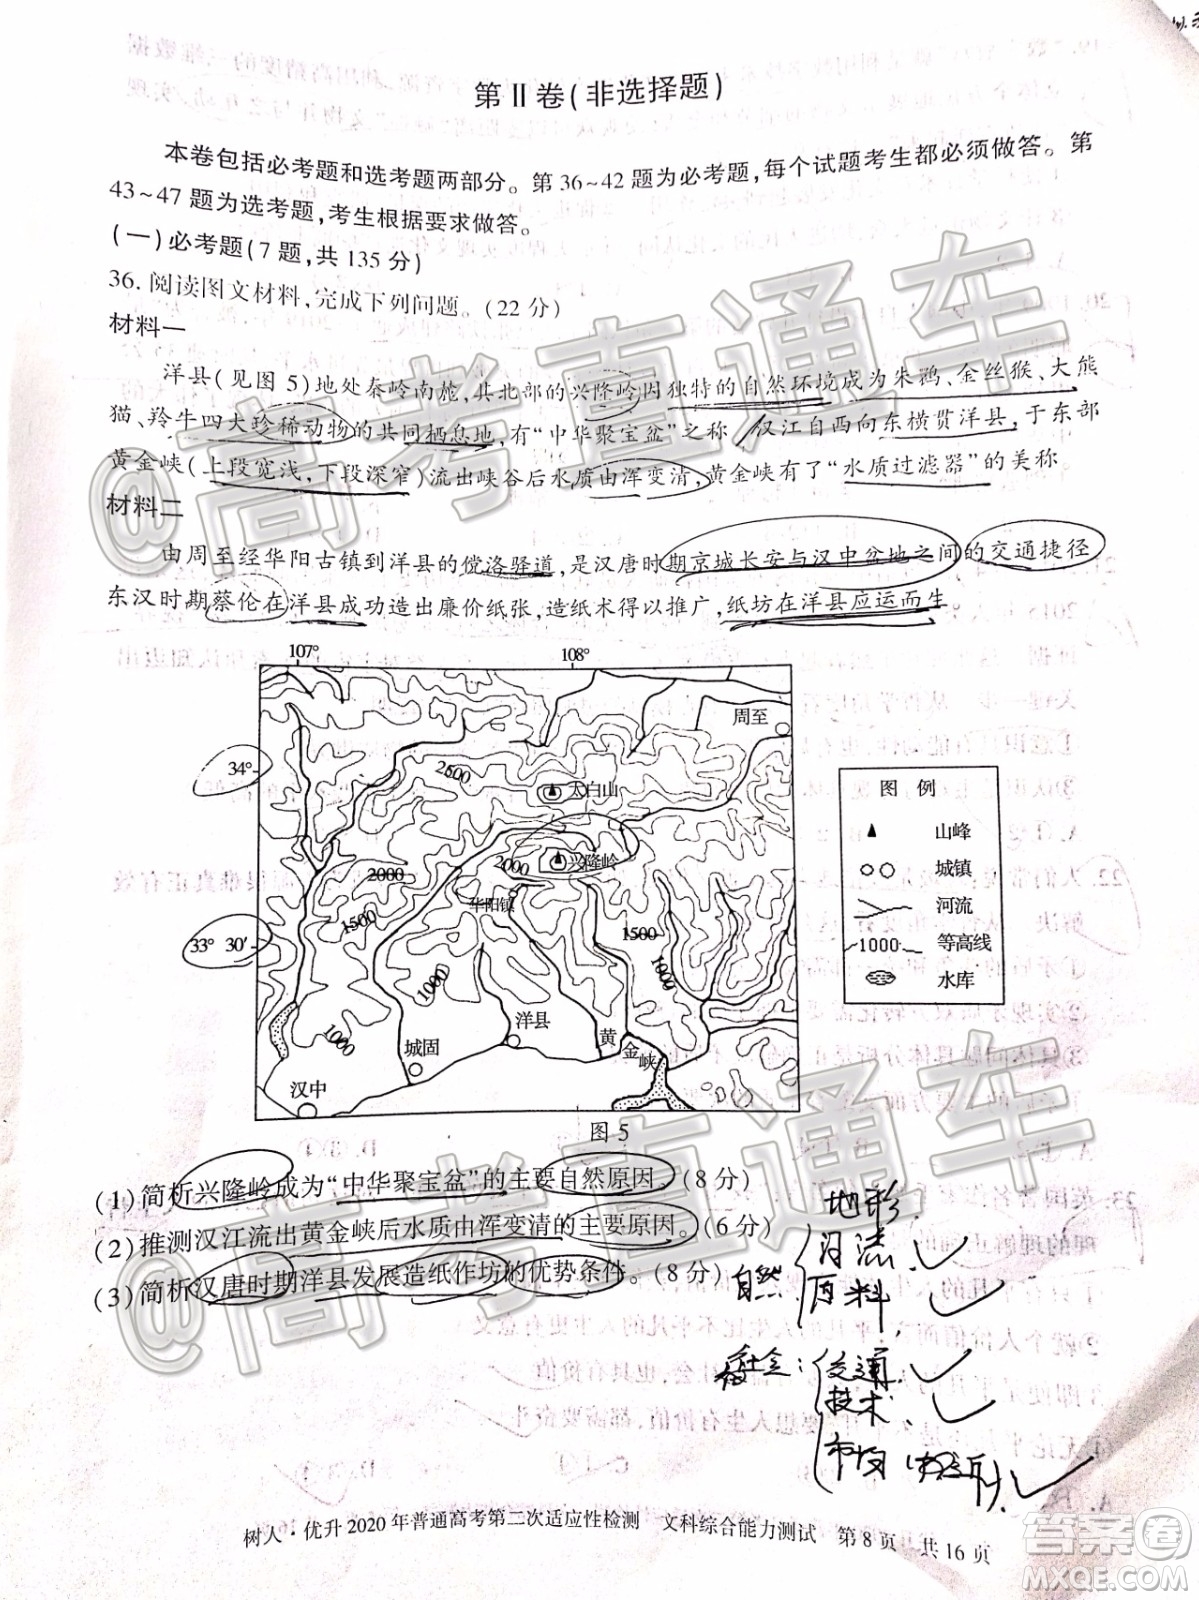 第Ⅱ卷(非选择题)
本卷包括必考题和选考题两部分。第36~42题为必考题,每个试题考生都必须做答。第
43~47题为选考题,考生根据要求做答。
(一)必考题(7题,共135分)
36.阅读图文材料,完成下列问题。(22分)
材料一
洋县(见图5)地处秦岭南麓,其北部的兴隆岭因独特的自然环境成为朱鹮、金丝猴、大熊
猫、羚牛四大珍稀动物的共同栖息地,有“中华聚宝盆”之称,汉江自西向东横贯洋县,于东部
黄金峡(上段宽浅,下段深窄)流出峡谷后水质由浑变清,黄金峡有了“水质过滤器”的美称
材料二
由周至经华阳古镇到洋县的傥洛驿道,是汉唐时期京城长安与汉中盆地之间的交通捷径
东汉时期蔡伦在洋县成功造出廉价纸张,造纸术得以推广,纸坊在洋县应运而生
107° 108°
周至
34°
2500
太白山
兴隆岭
2000
2000
华阳镇
1500
33° 30′
1500
1000
1000
1000
洋县
城固
黄金峡
汉中
图例
山峰
城镇
河流
1000 等高线
水库
图5
(1)简析兴隆岭成为“中华聚宝盆”的主要自然原因。(8分)
(2)推测汉江流出黄金峡后水质由浑变清的主要原因。(6分)
(3)简析汉唐时期洋县发展造纸作坊的优势条件。(8分)
地形
河流
自然
原料
社会:
交通
技术
市场
树人·优升2020年普通高考第二次适应性检测 文科综合能力测试 第8页 共16页
@高考直通车
@高考直通车
答案圈
MXQE.COM